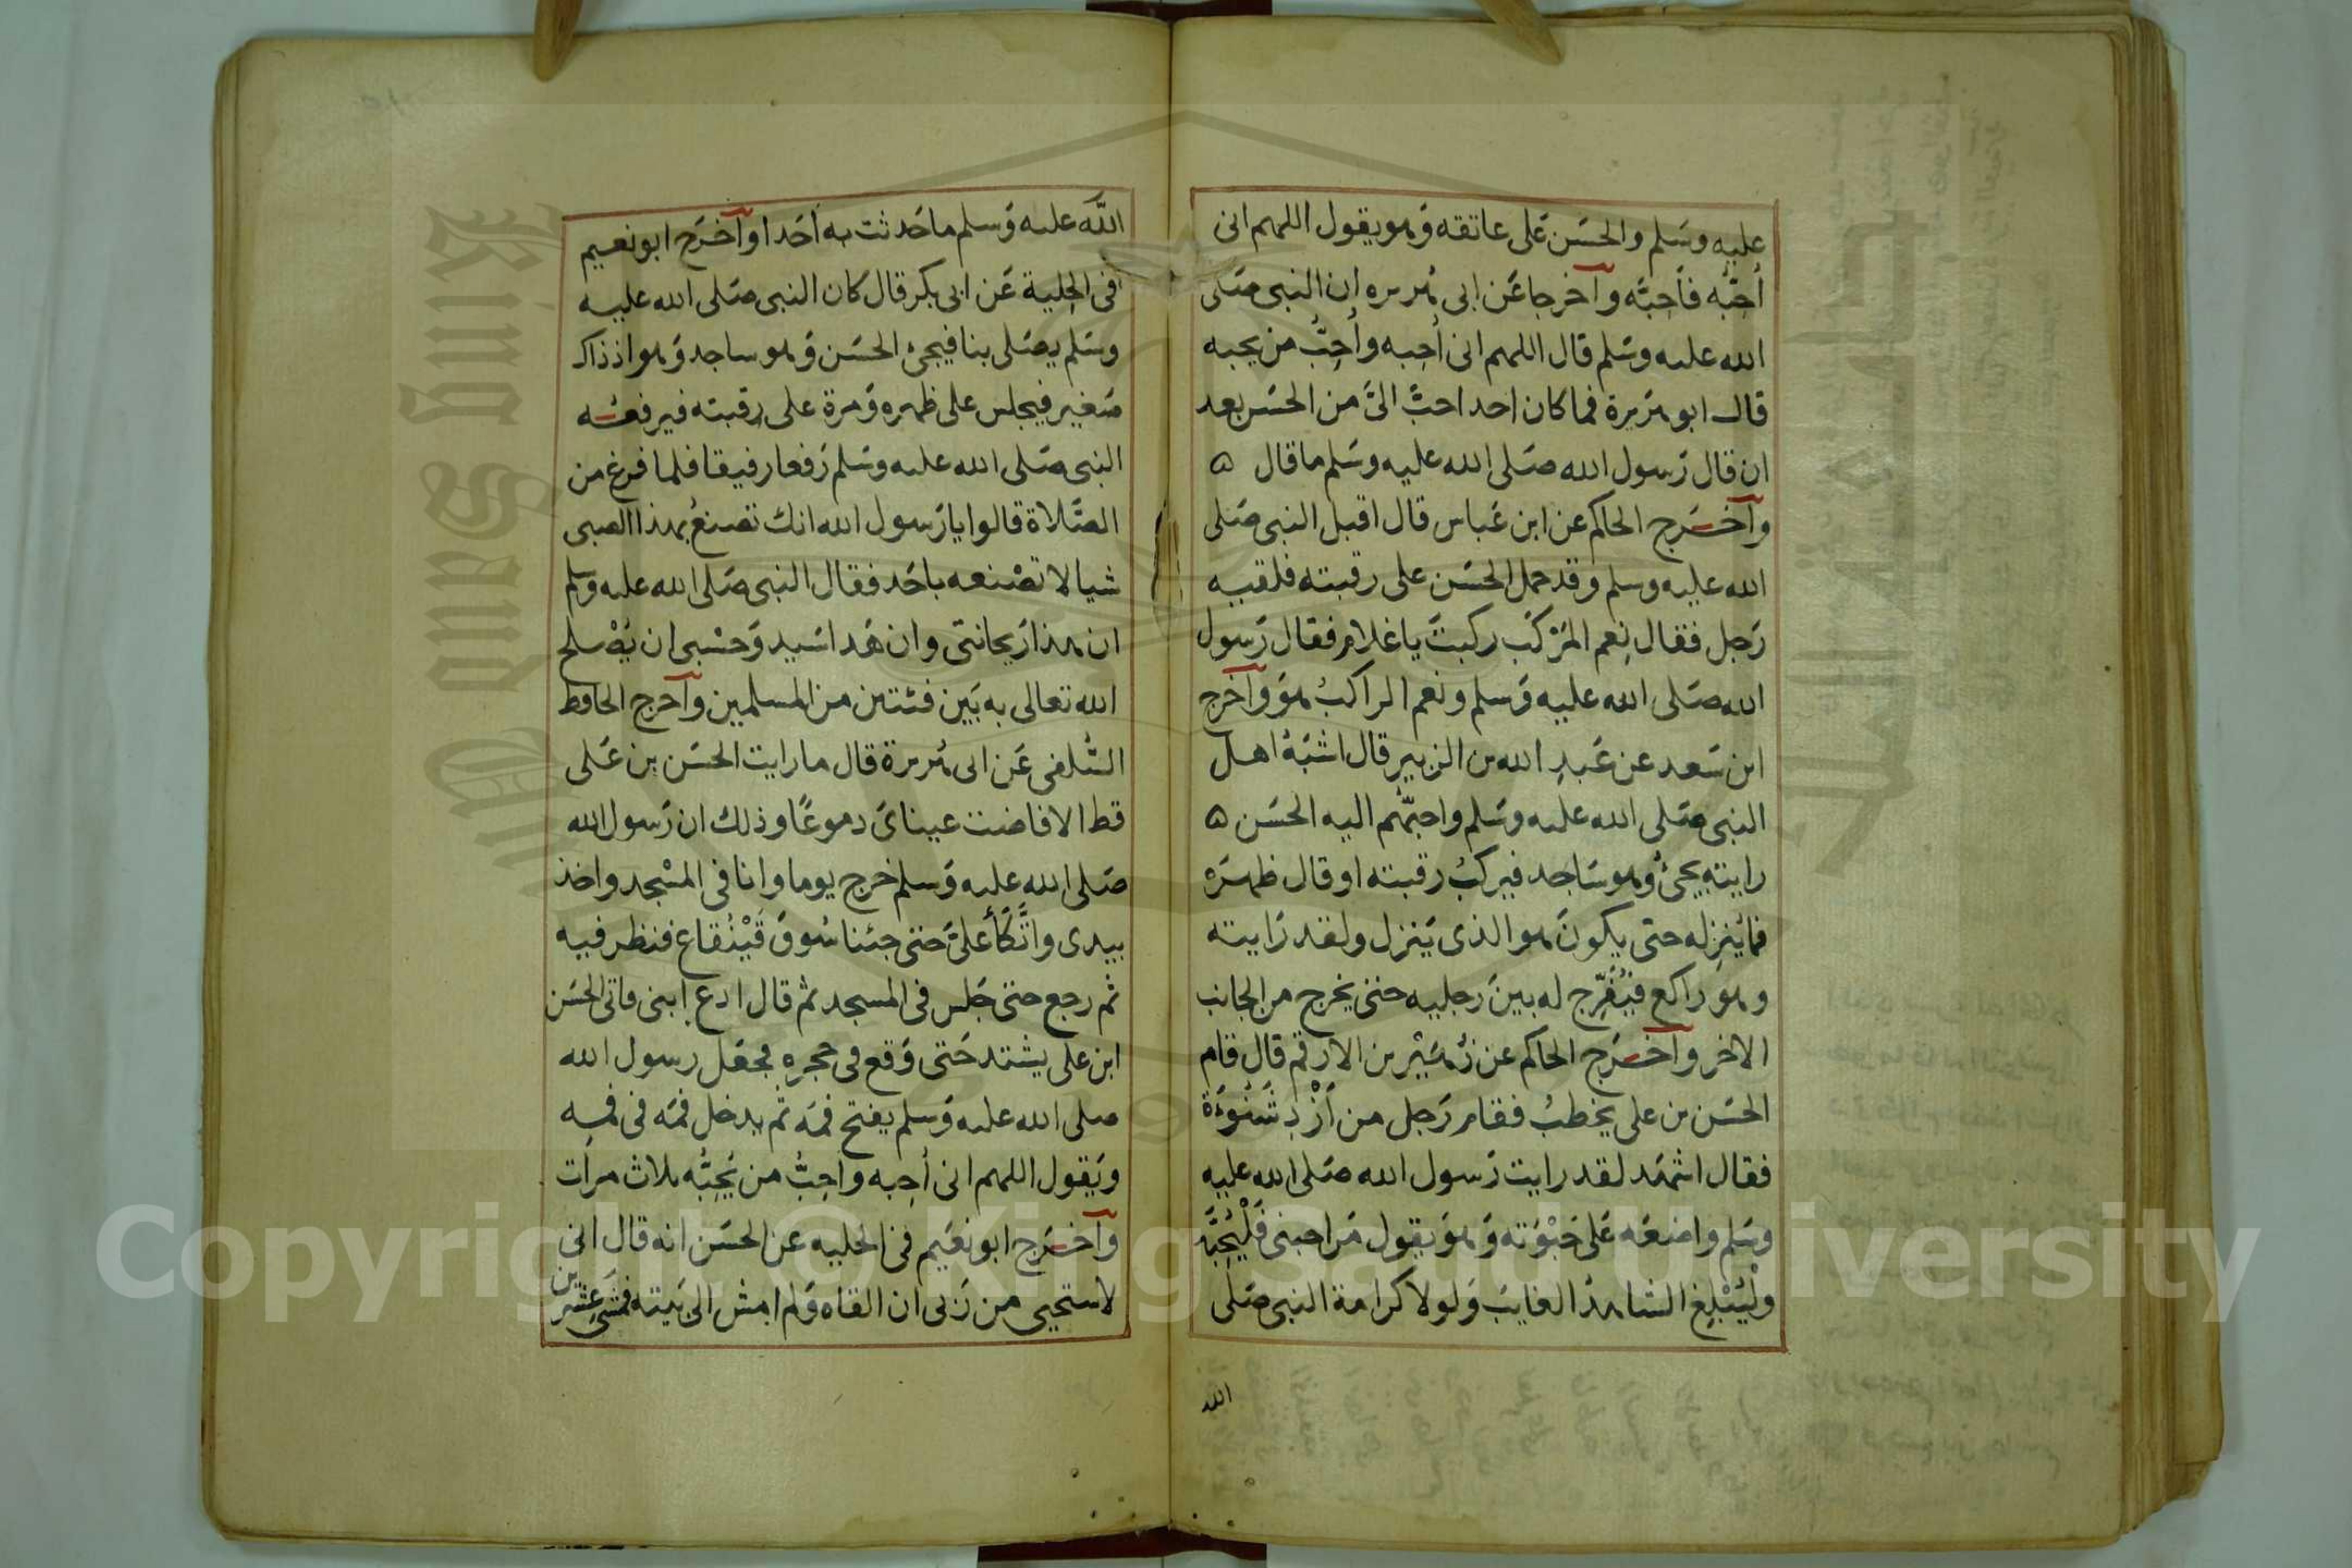 عليه وسَلم والحسَن عَلى عاتقه وَهو يقول اللهم انى
أُحِبُّه فأَحِبَّه وآخرجا عَن ابى هُريره ان النبى صَلى
الله عليه وسَلم قال اللهم انى أُحِبه وأُحِبُّ من يحبه
قال ابو هرَيرة فما كان احد احبَّ الىَّ من الحسَن بعد
ان قال رَسول الله صَلى الله عليه وسَلم ما قال ۵
وآخسَرج الحاكم عن ابن عَباس قال اقبل النبى صَلى
الله عليه وسلم وقد حمل الحسَن على رقبته فلقيه
رَجل فقال نِعم المَرْكَب ركبتَ يا غلام فقال رَسول
الله صَلى الله عليه وَسلم ونعم الراكبُ هوَ وآخرج
ابن سَعد عن عَبدِ الله بن الزبير قال اشبَهُ اهل
النبى صَلى الله عليه وسَلم واحبّهُم اليه الحسَن ۵
رايته يجئُ وهو سَاجد فيركبُ رقبته او قال ظهرَه
فما يُنزِله حتى يكونَ هو الذى يَنزل ولقد رَايته
وهو راكع فيُفَرِّج له بينَ رجليه حتى يخرج من الجانب
الاخر وآخرَج الحاكم عن زُهَيْر بن الارقم قال قام
الحسَن بن على يخطبُ فقام رَجل من أَزْدِ شَنُوءَة
فقال اشهَد لقد رايت رَسول الله صَلى الله عليه
وسَلم واضعَه عَلى حَبْوَته وَهوَ يقول مَن احبنى فَلْيُحِبَّه
ولْيُبْلِغ الشاهدُ الغايبَ وَلولا كرامة النبى صَلى
الله
اللّه عليه وَسلم ما حَدثت به اَحَدا وآخرَج ابو نعيم
فى الحِلية عَن ابى بكر قال كان النبى صَلى الله عليه
وسَلم يصَلى بنا فيجىُ الحسَن وَهو ساجد وَهو اذ ذاك
صَغير فيجلس على ظهره وَمرة على رقبته فيرفعُه
النبى صَلى الله عليه وسَلم رَفعا رفيقا فلما فرغ من
الصَّلاة قالوا يا رَسول الله انك تصنعُ بهذا الصبى
شيا لا تصْنعه باحَد فقال النبى صَلى الله عليه وسَلم
ان هذا رَيحانتى وان هَذا سَيد وَحسْبى ان يُصْلح
الله تعالى به بَين فئتين من المسلمين وآخرج الحافظ
السُّلفى عَن ابى هُريرة قال ما رايت الحسَن بن عَلى
قط الا فاضت عيناىَ دموعًا وذلك ان رَسول الله
صَلى الله عليه وَسلم خرج يوما وانا فى المسْجد واخذ
بيدى واتَّكَأ علىَّ حَتى جئنا سُوقَ قَيْنُقاع فنظر فيه
ثم رجع حتى جَلس فى المسجد ثم قال ادع ابنى فاتى الحسَن
ابن على يشتد حَتى وَقع فى حجرِه فجعَل رسول الله
صلى الله عليه وَسلم يفتح فمَه ثم يدخل فمَه فى فمِه
وَيقول اللهم انى أُحِبه واحِبُّ من يُحِبُّه ثلاث مرات
وآخسَرج ابو نعَيم فى الحليه عن الحسَن انه قال انى
لاستحيى من رَبى ان القاه وَلم امش الى بَيته فمشى عِشرين